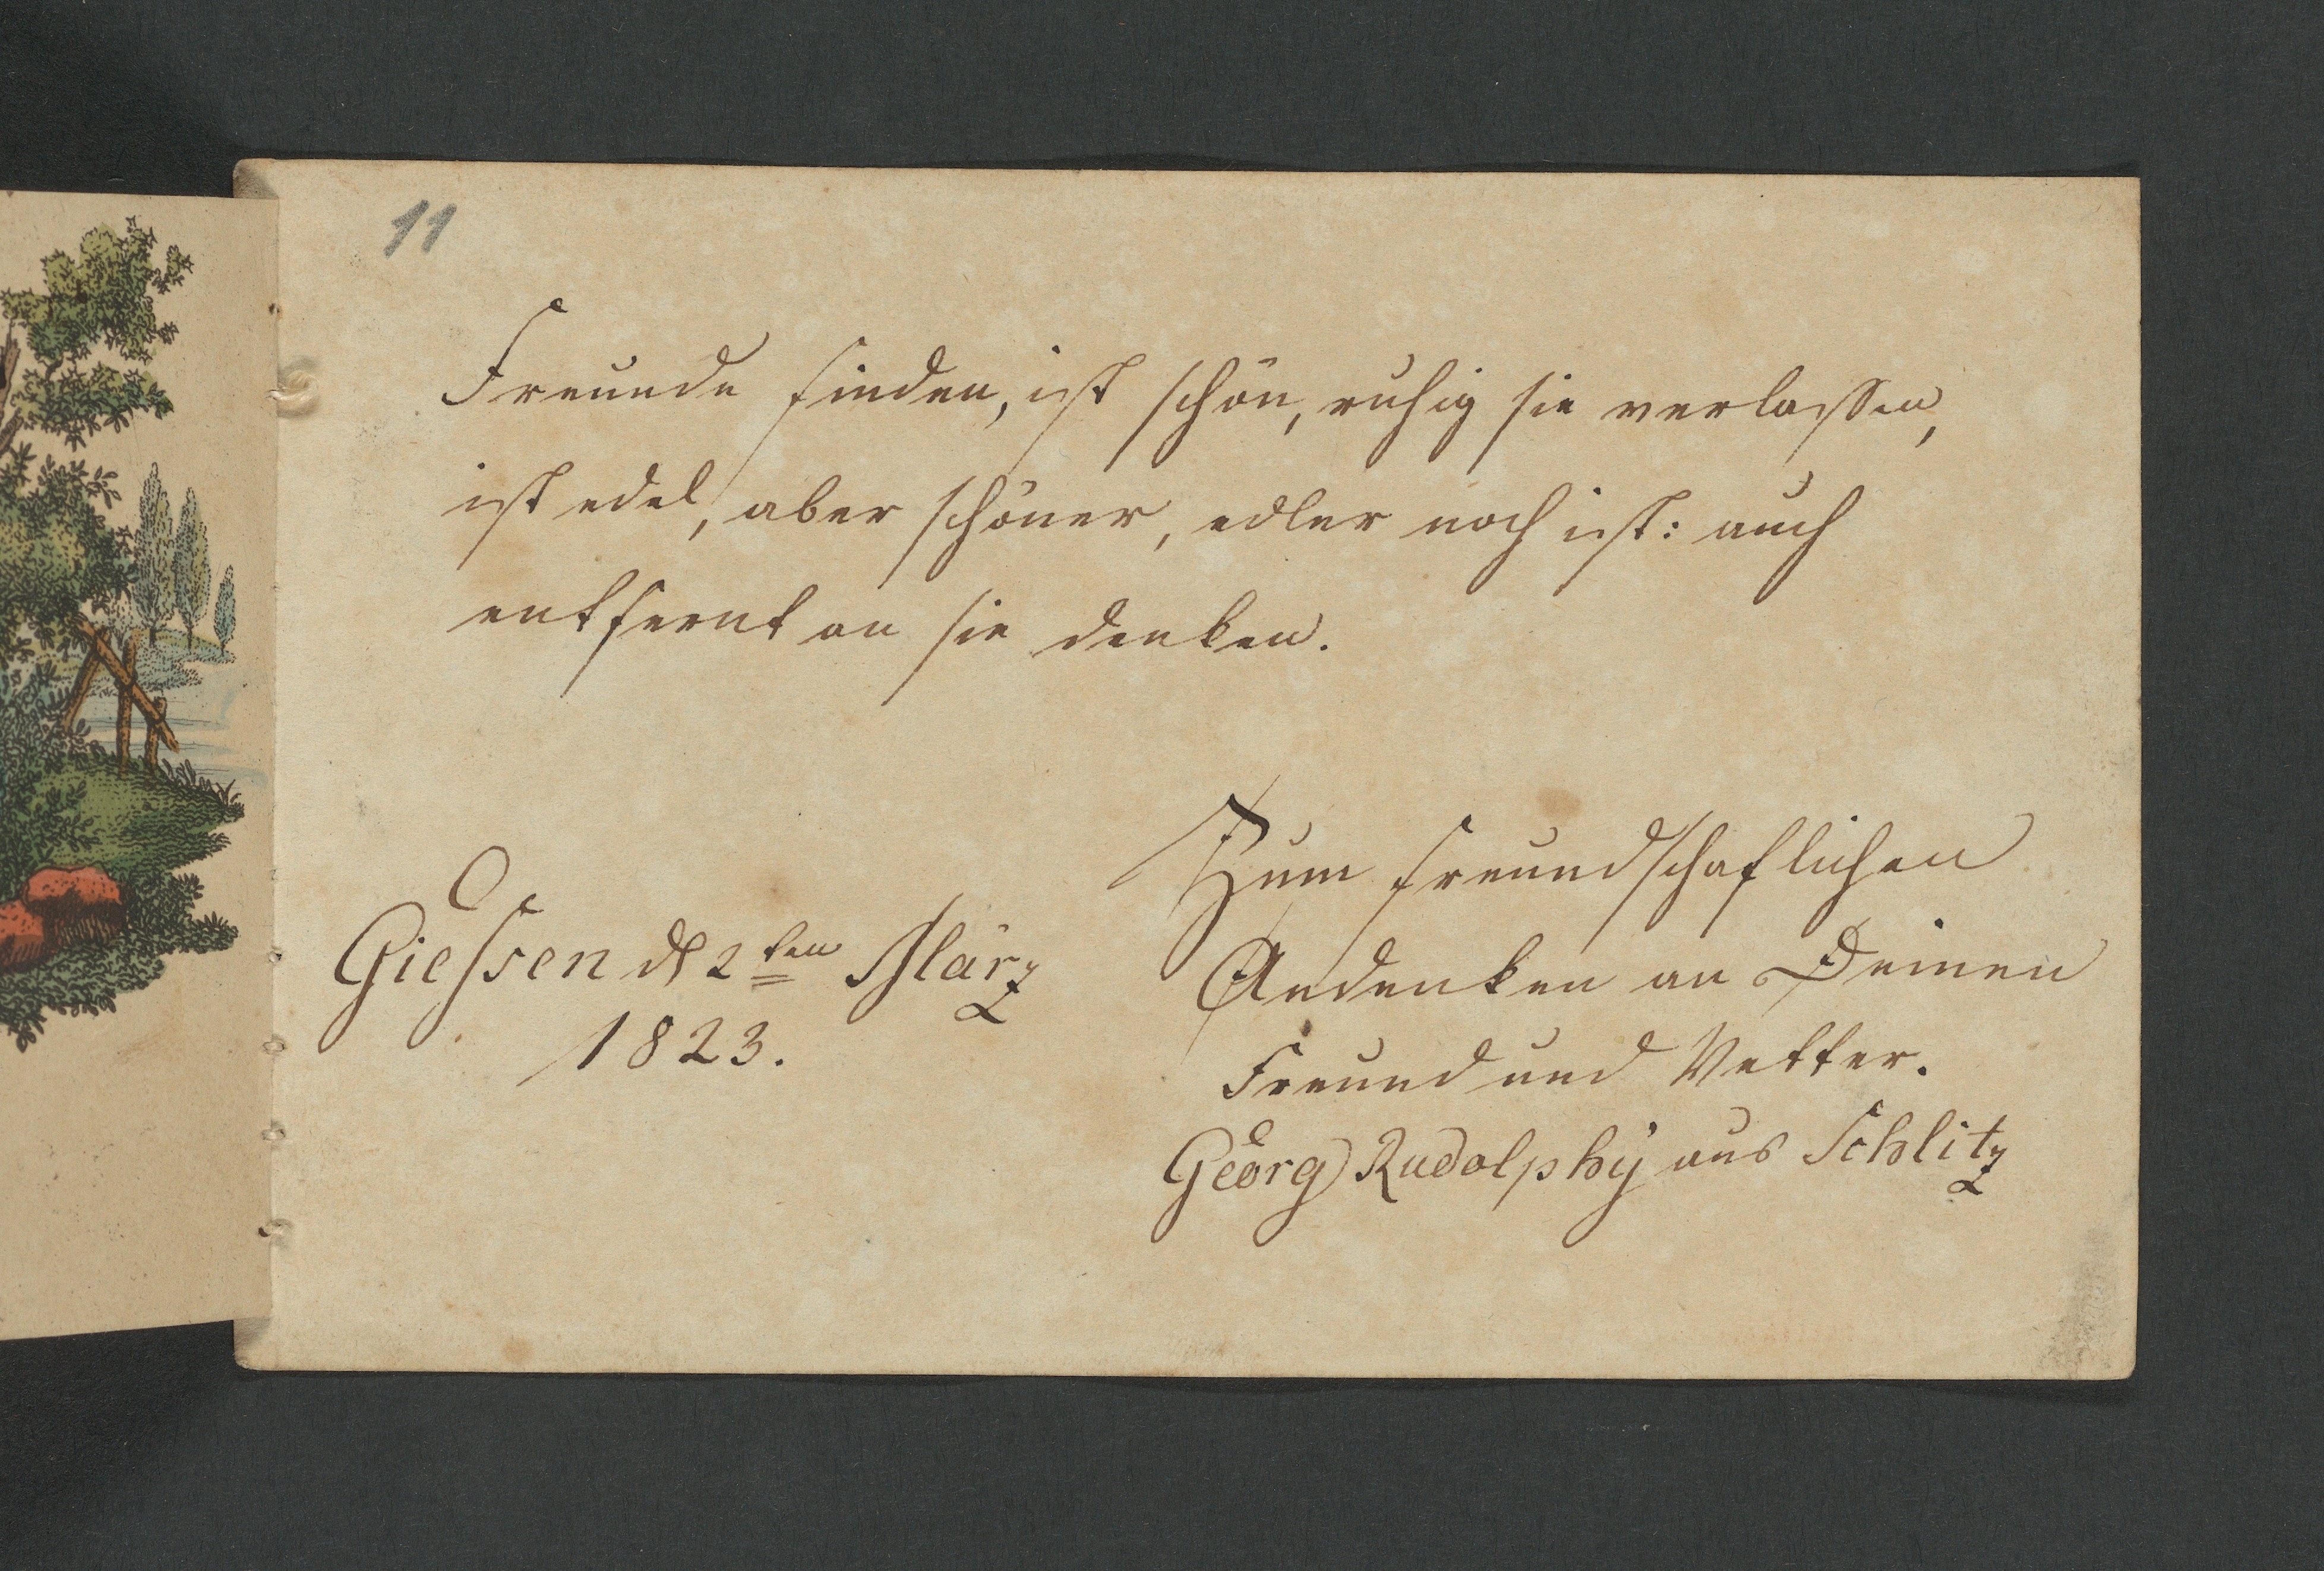 11
Freunde finden, ist schön, ruhig sie verlassen,
ist edel, aber schöner, edler noch ist: auch
entfernt an sie denken.
Zum freundschaflichen
Andenken an Deinen
Freund und Vetter.
Georg Rudolphÿ aus Schlitz
Giessen d 2ten März
1823.